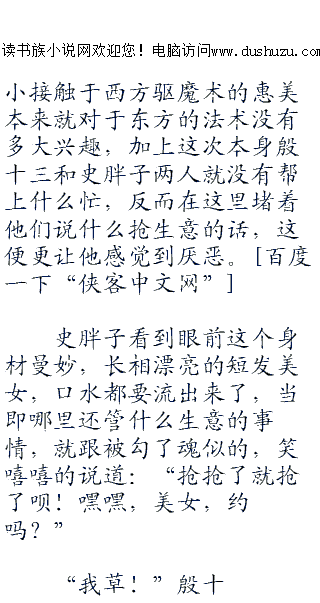 读书族小说网欢迎您！电脑访问www.dushuzu.com
小接触于西方驱魔术的惠美
本来就对于东方的法术没有
多大兴趣，加上这次本身殷
十三和史胖子两人就没有帮
上什么忙，反而在这里堵着
他们说什么抢生意的话，这
便更让他感觉到厌恶。[百度
一下“侠客中文网”]
史胖子看到眼前这个身
材曼妙，长相漂亮的短发美
女，口水都要流出来了，当
即哪里还管什么生意的事
情，就跟被勾了魂似的，笑
嘻嘻的说道：“抢抢了就抢
了呗！嘿嘿，美女，约
吗？”
“我草！”殷十